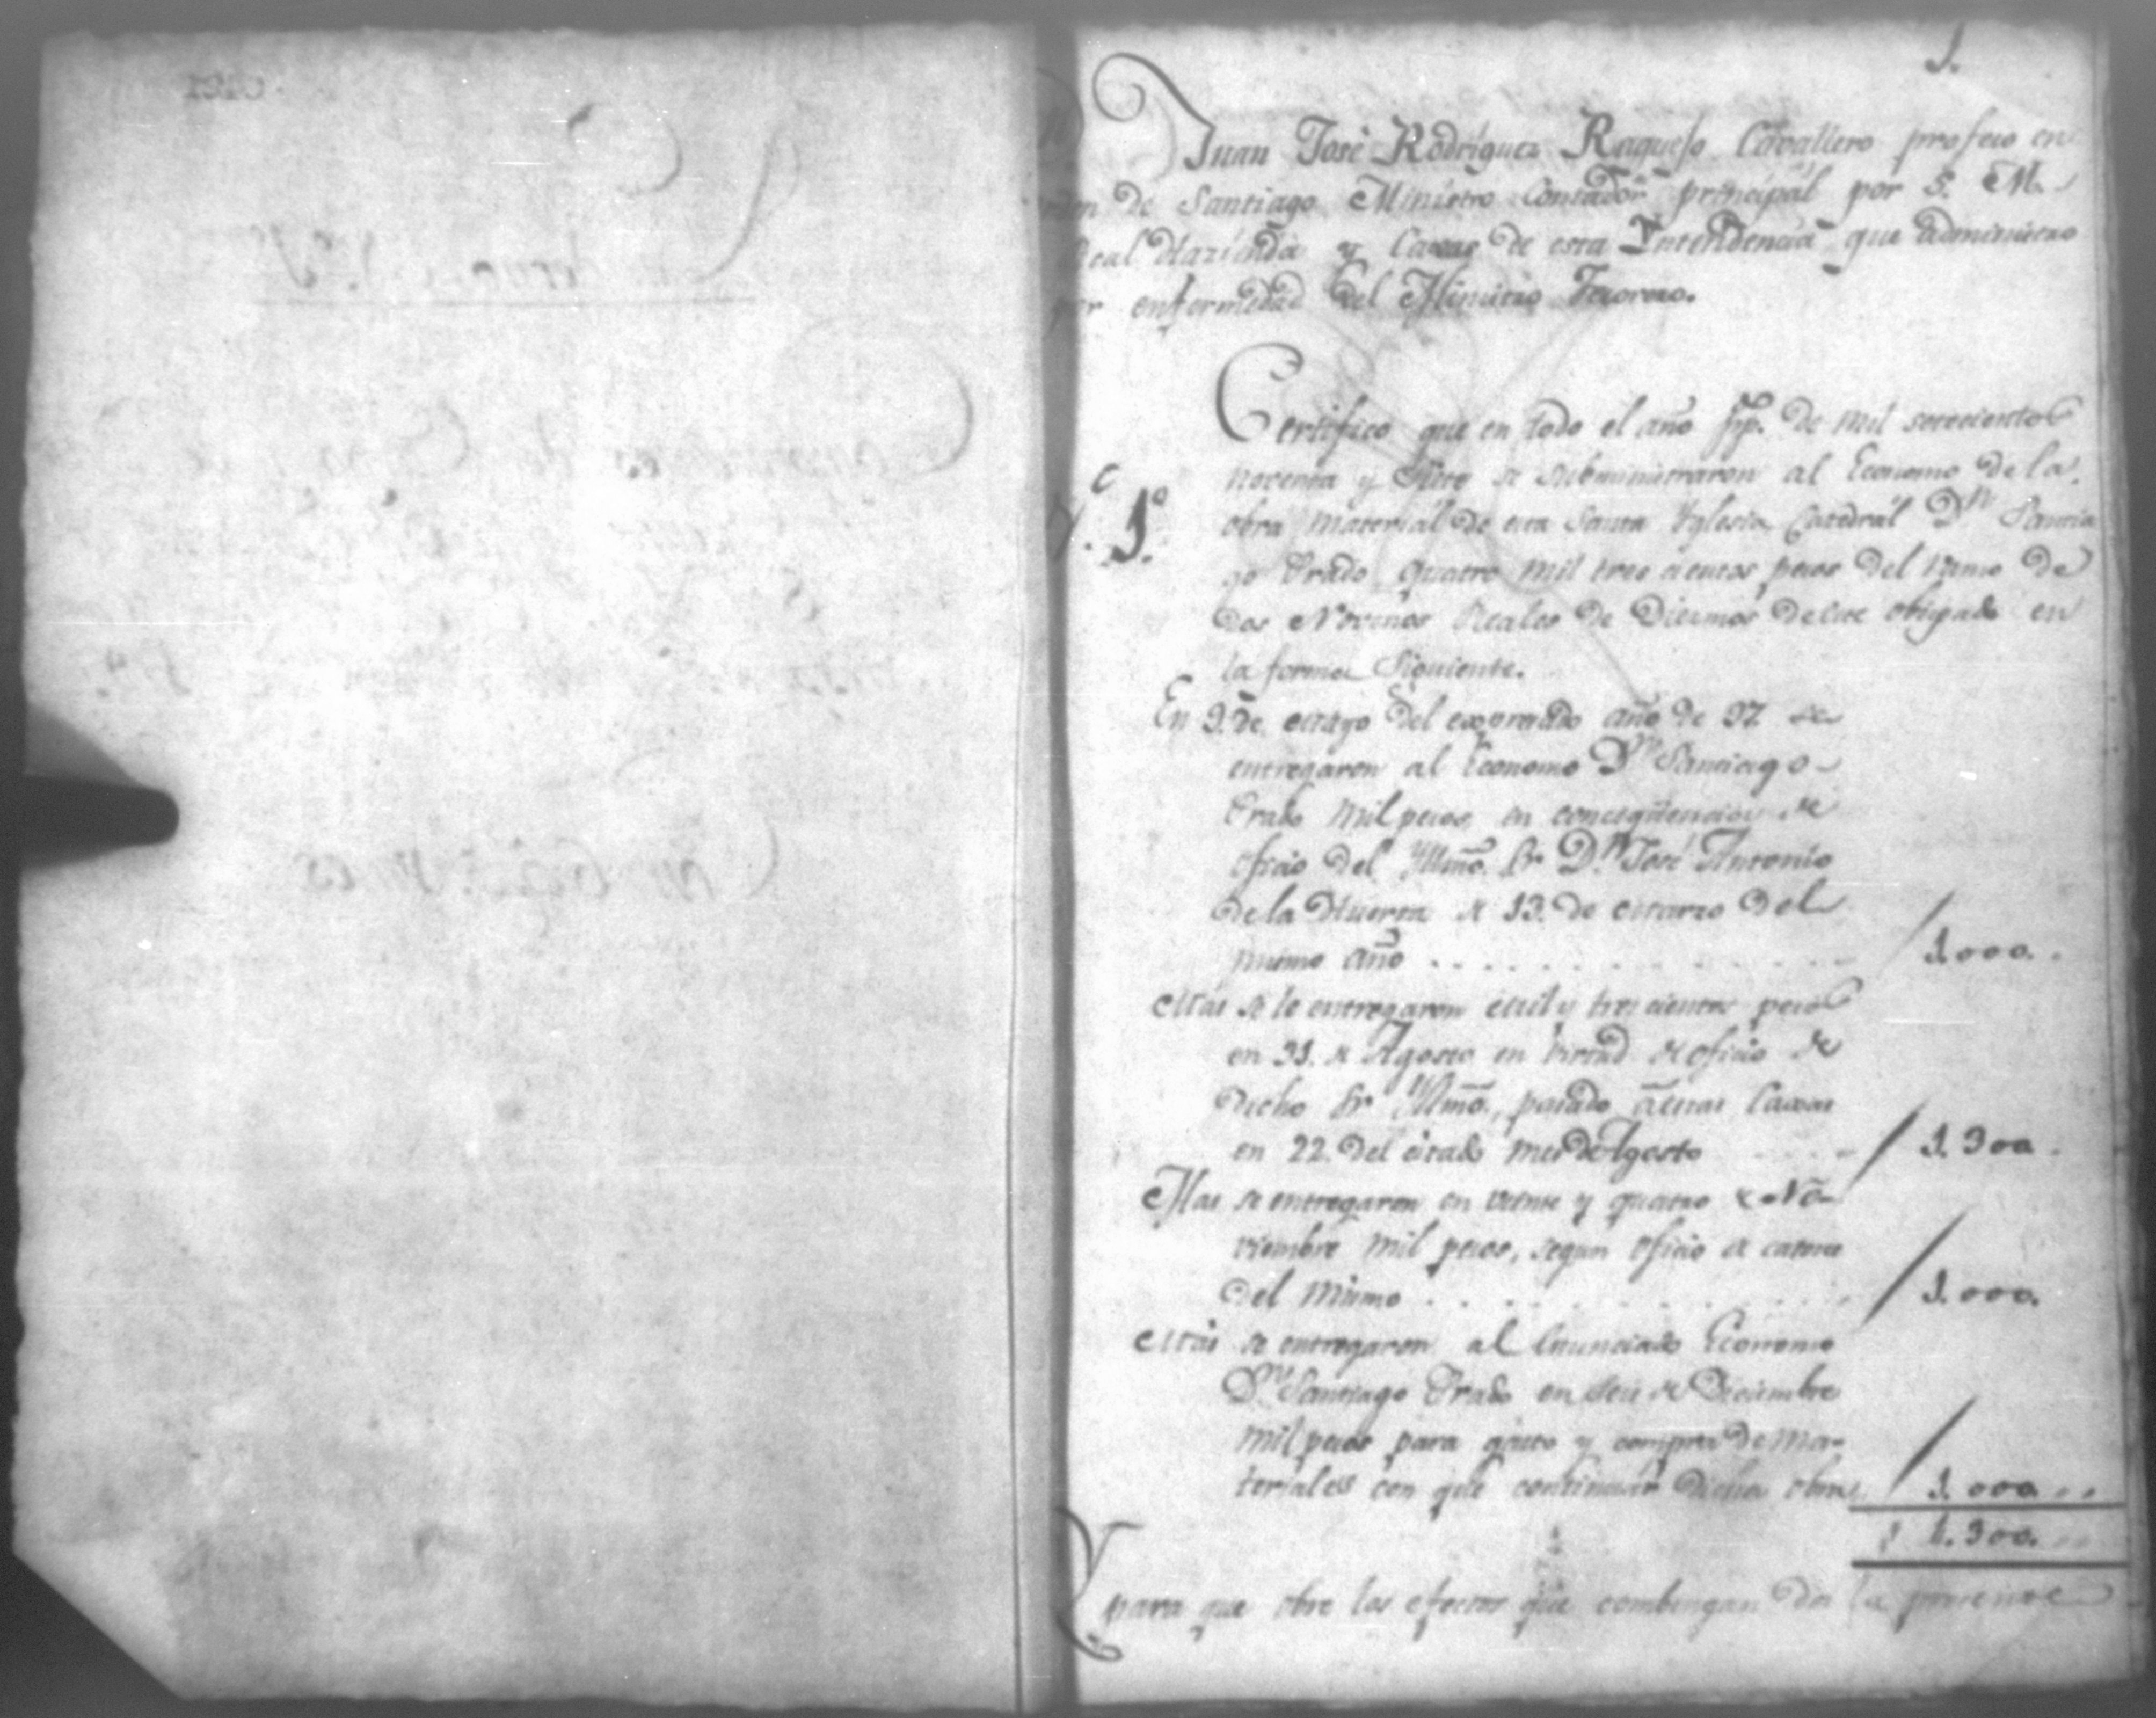 1.
Juan José Rodríguez Raquejo Cavallero profeso en
de Santiago Ministro Contador principál por S. M.
Real Hazienda y Caxas de esta Intendencia que administro
por enfermedad del Ministro Tesorero.
Certifico que en todo el año pp. de mil setecientos
noventa y siete se subministraron al Economo de la
N. 1.º
obra material de esta Santa Yglesia Catedrál Dn. Santia
go Prado quatro mil trescientos pesos del ramo de
dos Novenos Reales de Diezmos de este obispado en
la forma siguiente.
En 9. de Mayo del expresado año de 97 se
entregaron al Economo Dn. Santiago
Prado mil pesos, en conseqüencia de
oficio del Yllmô. Sr. Dn. José Antonio
de la Huerta de 13. de Marzo del
mismo año . . . . . . . . . . 1.000.
Mas se le entregaron mil y trescientos pesos
en 31. de Agosto en virtud de oficio de
dicho Sr. Yllmô., pasado á estas Caxas
en 22. del citado mes de Agosto . . . . 1.300.
Mas se entregaron en veinte y quatro de No-
viembre mil pesos, segun oficio de catorce
del mismo . . . . . . . . . . 1.000.
Mas se entregaron al enunciado Economo
Dn. Santiago Prado en seis de Diciembre
mil pesos para gasto y compra de ma-
teriales con que continuar dicha obra 1.000..
4.300.
Y para que obre los efectos que combengan doi la presente